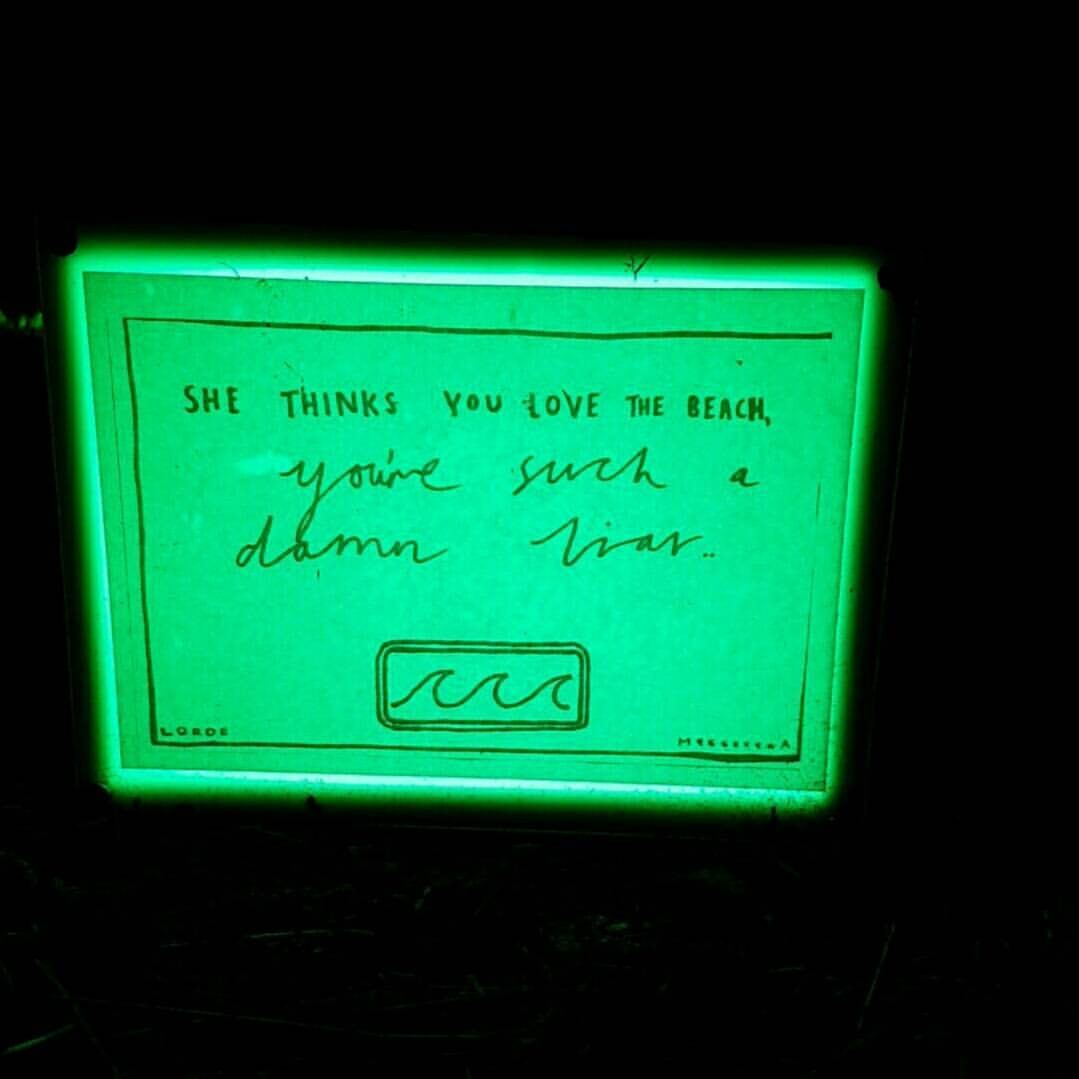 SHE THINKS YOU LOVE THE BEACH,
you're such a
damn liar..
LORDE